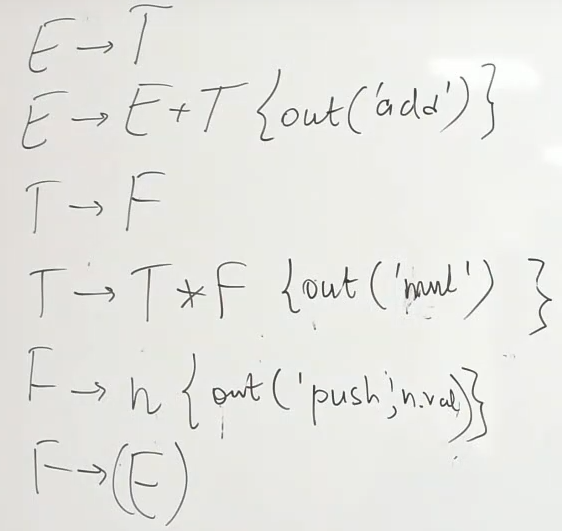 E → T
E → E + T {out('add')}
T → F
T → T * F {out('mul')}
F → n {out('push', n.val)}
F → (E)